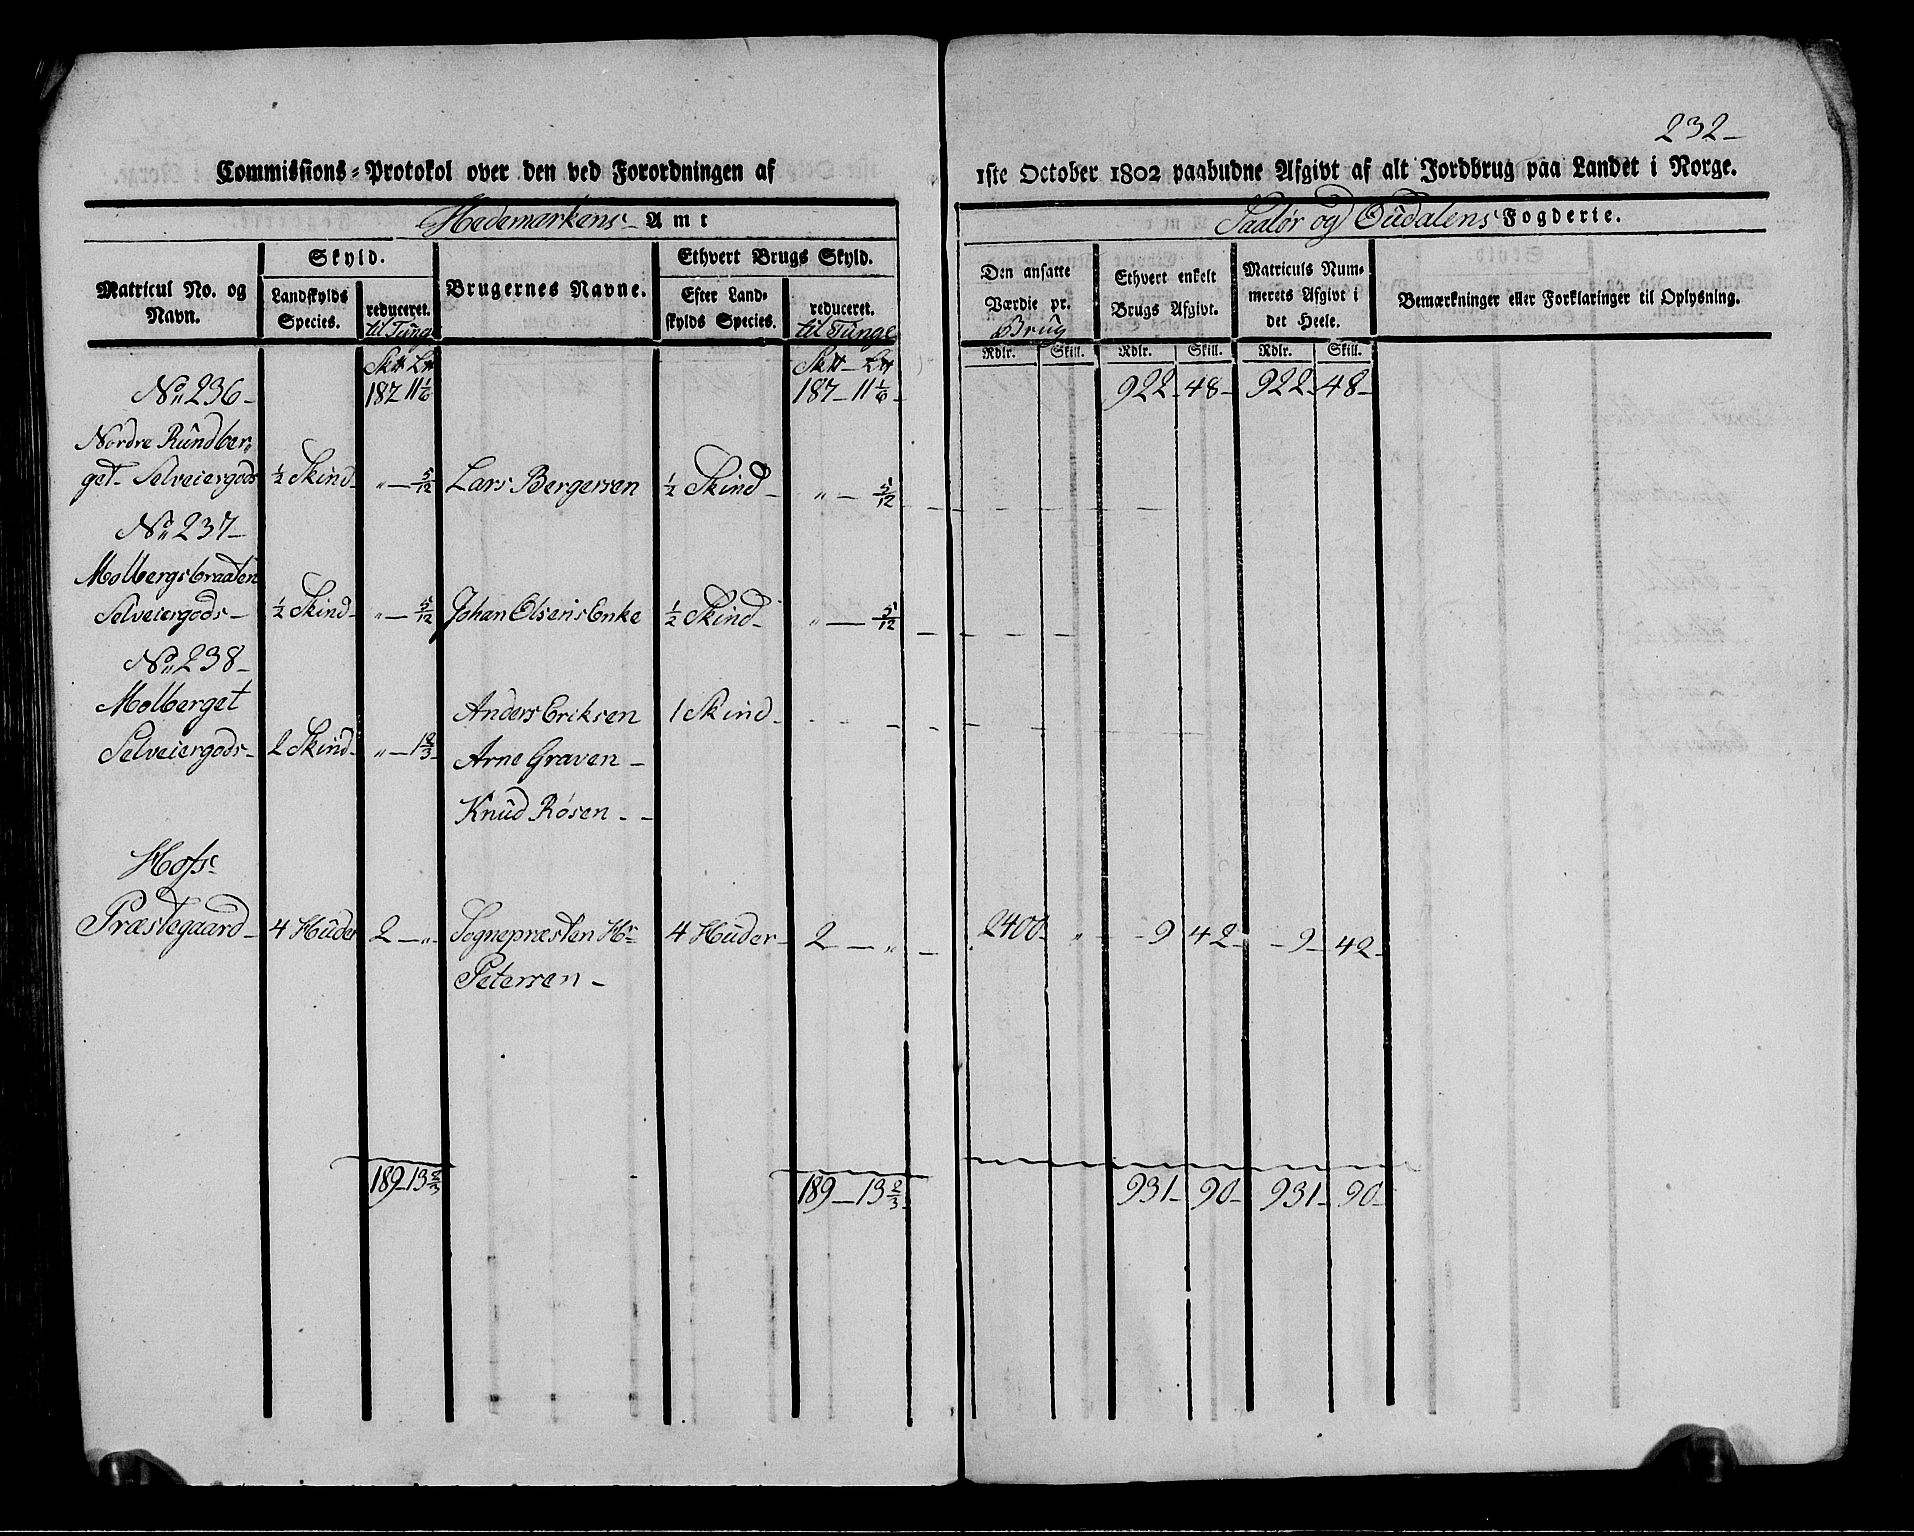 232-
Commissions-Protokol over den ved Forordningen af 1ste October 1802 paabudne Afgivt af alt Jordbrug paa Landet i Norge.
Hedemarkens Amt
Soløer og Oudalens Fogderie.
Matricul No. og Navn.
Skyld.
Landskylds Species.
reduceret. til Tunge
Brugernes Navne.
Ethvert Brugs Skyld.
Efter Landskylds Species.
reduceret. til Tunge
Den ansatte Værdie pr. Brug
Ethvert enkelt Brugs Afgivt.
Matriculs Nummerets Afgivt i det Heele.
Bemærkninger eller Forklaringer til Oplysning.
Rdlr. Skill. Rdlr. Skill. Rdlr. Skill.
No 236- 187 11 1/6 187-11 1/6 922-48- 922-48-
Nordre Rundber-
get- Selveiergods ½ Skind- " - 5/12 Lars Bergersen ½ Skind- " - 5/12
No 237-
Molbergsbraaten
Selveiergods- ½ Skind- " - 5/12 Johan Olsens Enke ½ Skind- " - 5/12
No 238-
Molberget Anders Eriksen 1 Skind-
Selveiergods- 2 Skind- " - 1 2/3 Arne Graven -
Knud Røsen - -
Hofs
Præstegaard- 4 Huder 2 - " - Sognepræsten Hr 4 Huder- 2 - " - 2400- " - 9 42- - 9- 42-
Petersen -
189-13 2/3 189-13 2/3 931- 90- 931- 90-